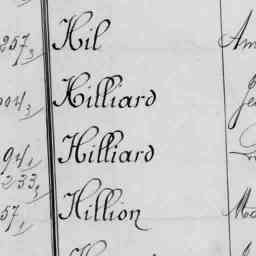 257/3 Hil Am
04/3 Hilliard
94/1 Hilliard
233/1
57/1 Hillion Ma